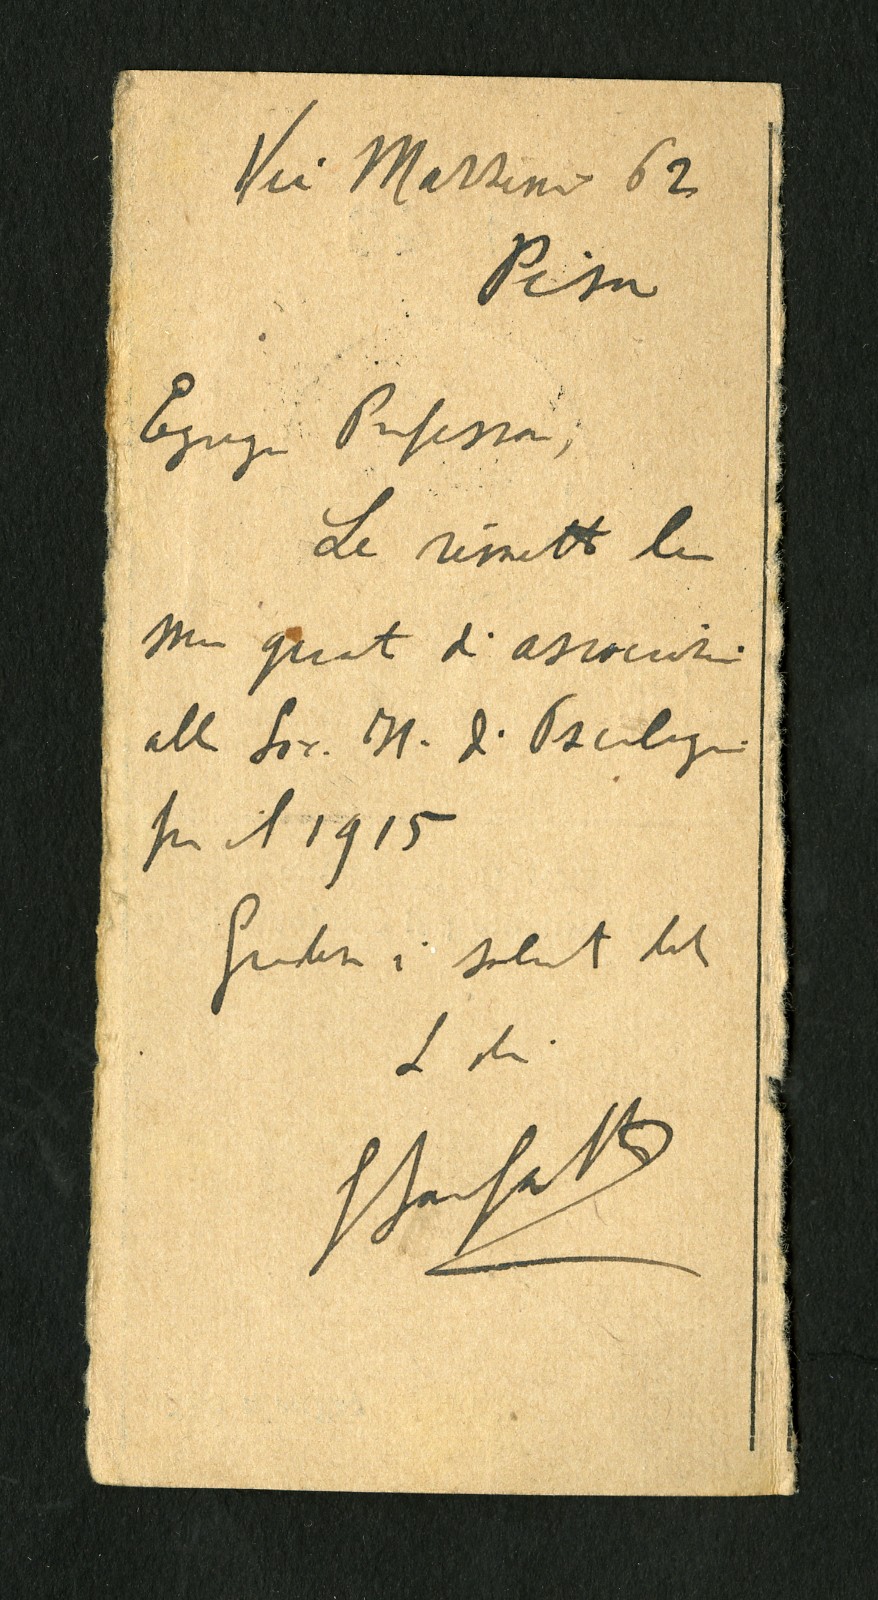 Via Mazzini 62
Pisa
Egregio Professore,
Le rimetto la
mia quota di associazione
alla Soc. It. di Psicologia
per il 1915
Gradisca i saluti del